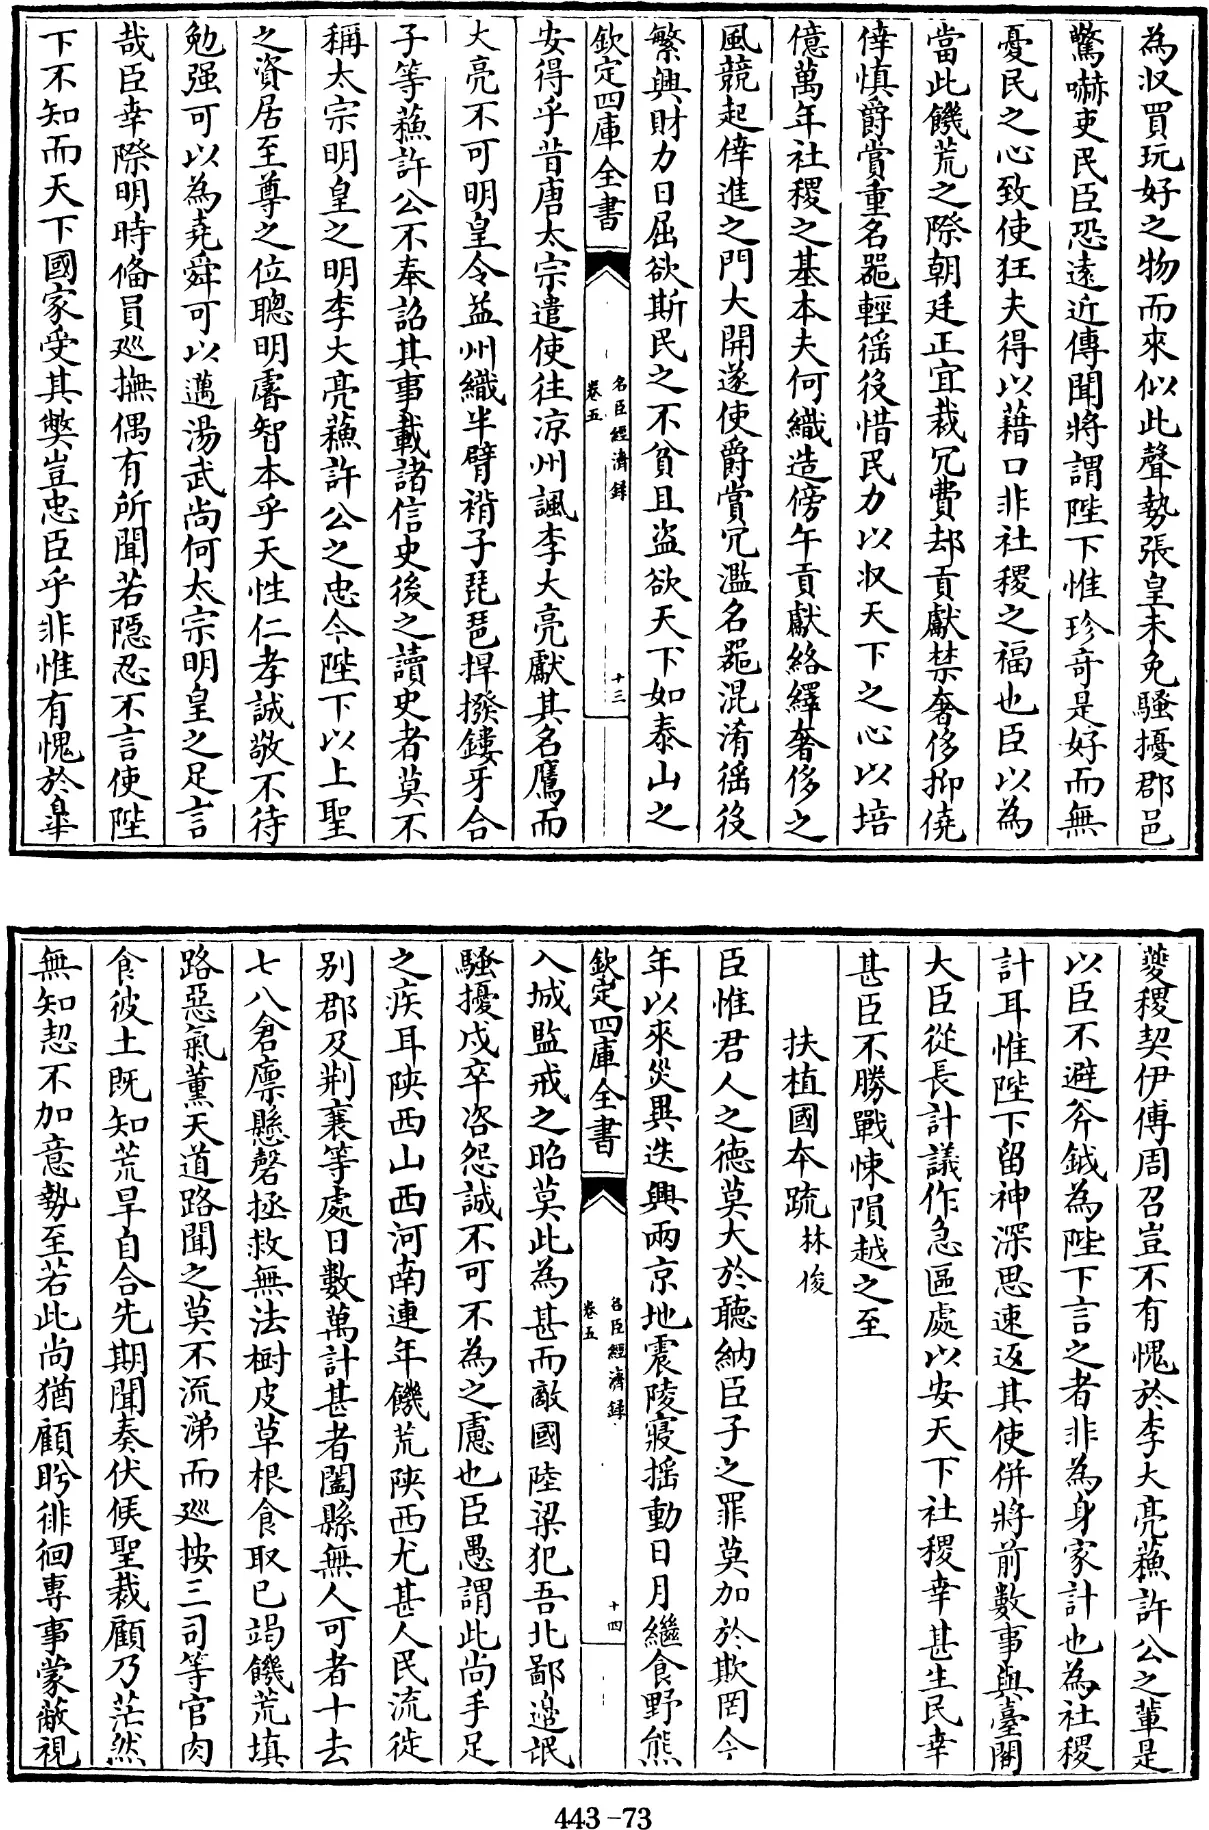 為収買玩好之物而來似此聲勢張皇未免騷擾郡邑
驚嚇吏民臣恐遠近傳聞將謂陛下惟珍奇是好而無
憂民之心致使狂夫得以藉口非社稷之福也臣以為
當此饑荒之際朝廷正宜裁冗費却貢獻禁奢侈抑僥
倖慎爵賞重名器輕徭役惜民力以収天下之心以培
億萬年社稷之基本夫何織造傍午貢獻絡繹奢侈之
風競起倖進之門大開遂使爵賞冗濫名器混淆徭役
繁興財力日屈欲斯民之不貧且盜欲天下如泰山之
欽定四庫全書
名臣經濟錄
卷五
十三
安得乎昔唐太宗遣使往凉州諷李大亮獻其名鷹而
大亮不可明皇令益州織半臂褙子琵琶捍撥鏤牙合
子等蘓許公不奉詔其事載諸信史後之讀史者莫不
稱太宗明皇之明李大亮蘓許公之忠今陛下以上聖
之資居至尊之位聰明睿智本乎天性仁孝誠敬不待
勉强可以為堯舜可以邁湯武尚何太宗明皇之足言
哉臣幸際明時偹員巡撫偶有所聞若隱忍不言使陛
下不知而天下國家受其弊豈忠臣乎非惟有愧於臯
夔稷契伊傅周召豈不有愧於李大亮蘓許公之輩是
以臣不避斧鉞為陛下言之者非為身家計也為社稷
計耳惟陛下留神深思速返其使併將前數事與臺閣
大臣從長計議作急區處以安天下社稷幸甚生民幸
甚臣不勝戰悚隕越之至
扶植國本疏 林俊
臣惟君人之德莫大於聽納臣子之罪莫加於欺罔今
年以來災異迭興兩京地震陵寢揺動日月繼食野熊
欽定四庫全書
名臣經濟録
卷五
十四
入城監戒之昭莫此為甚而敵國陸梁犯吾北鄙邉氓
騷擾戍卒咨怨誠不可不為之慮也臣愚謂此尚手足
之疾耳陜西山西河南連年饑荒陜西尤甚人民流徙
别郡及荆襄等處日數萬計甚者闔縣無人可者十去
七八倉廪懸磬拯救無法樹皮草根食取已竭饑荒填
路惡氣薰天道路聞之莫不流涕而巡按三司等官肉
食彼土既知荒旱自合先期聞奏伏候聖裁顧乃茫然
無知恝不加意勢至若此尚猶顧盻徘徊專事蒙蔽視
443-73